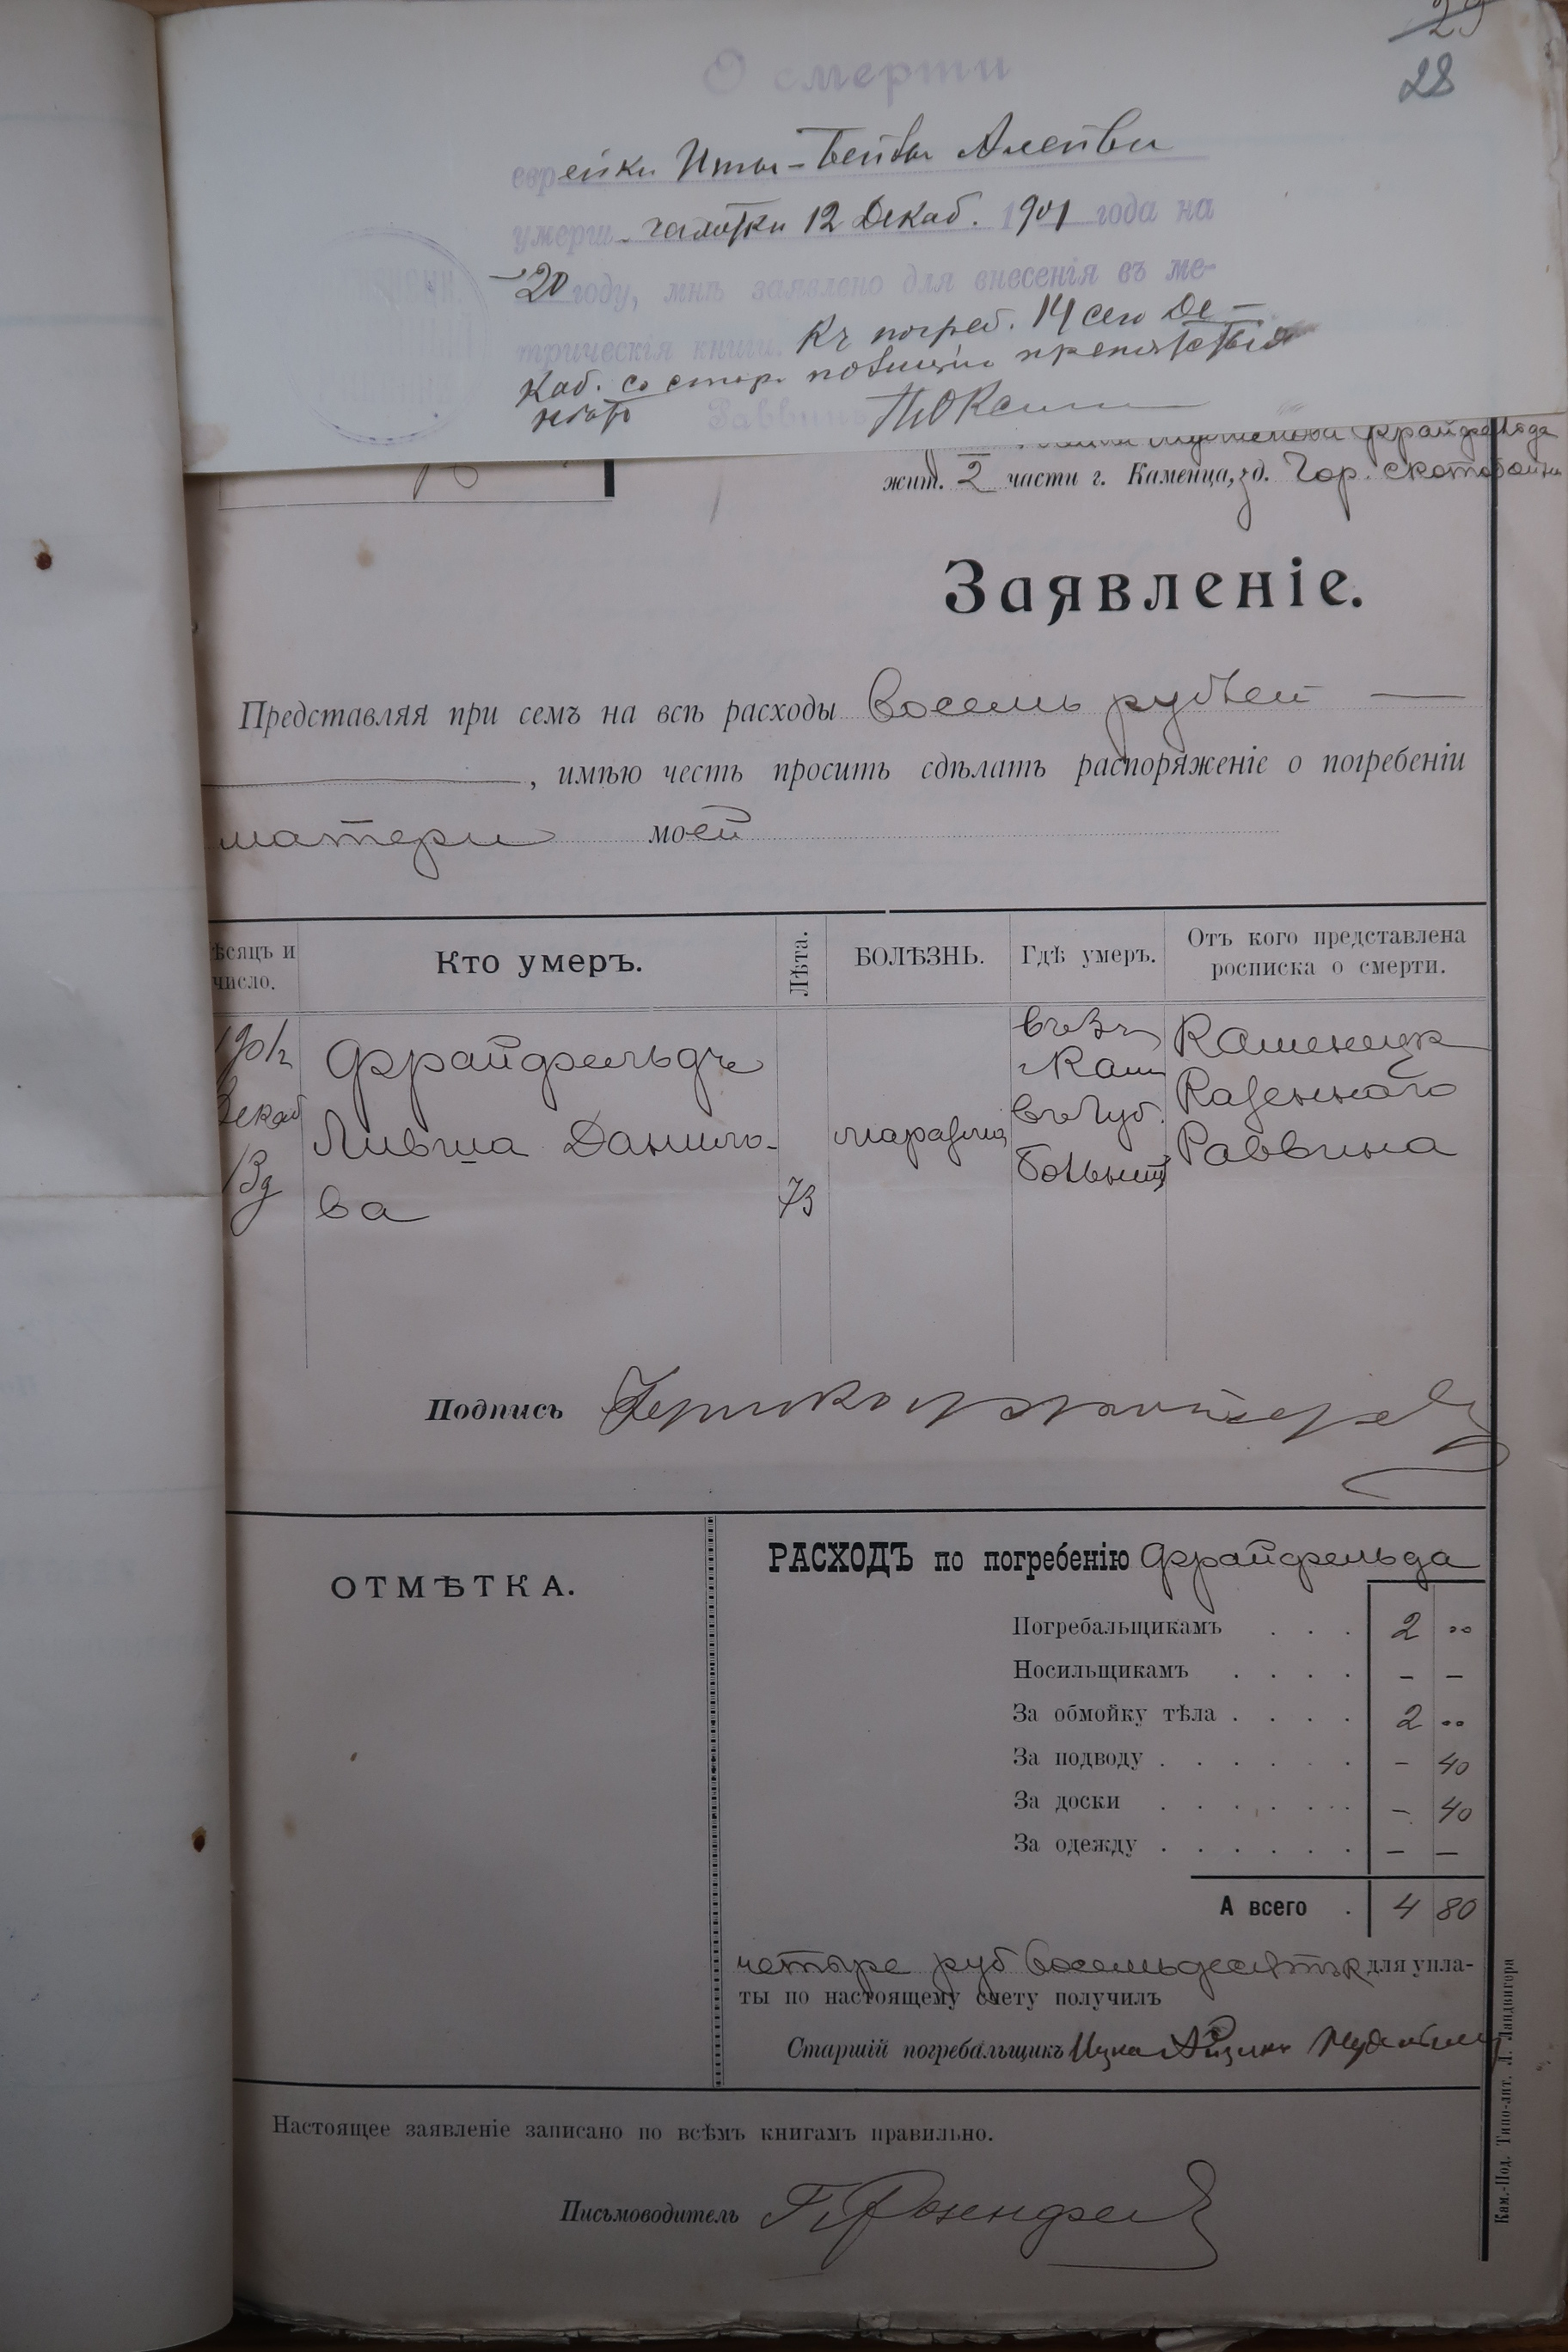 29
28
О смерти
еврейки Иты-Бейлы
умерш. чахотки 12 Декаб. 1901 года на
20 году, мнѣ заявлено для внесенія въ ме-
трическія книги. Къ погреб. 14 сего Де-
каб. со стор. полиціи препятствія
нѣтъ Раввинъ
Фрайфельда
жит. 2 части г. Каменца, зд. Гор. скотобойни
Заявленіе.
Представляя при семъ на всѣ расходы восемь рублей
, имѣю честь просить сдѣлать распоряженіе о погребеніи
матери моей
ѣсяцъ и число.
Кто умеръ.
Лѣта.
БОЛѢЗНЬ.
Гдѣ умеръ.
Отъ кого представлена росписка о смерти.
1901г
Декаб
13д
Фрайфельдъ
Ливша Данило-
ва
73
маразмъ
Кам
въ Губ.
Больниц
Каменецк
Казеннаго
Раввина
Подпись
ОТМѢТКА.
РАСХОДЪ по погребенію Фрайфельда
Погребальщикамъ . . . 2 ..
Носильщикамъ . . . . – –
За обмойку тѣла . . . . 2 ..
За подводу . . . . . . – 40
За доски . . . . . . – 40
За одежду . . . . . . – –
А всего . 4 80
четыре руб восемьдесятъ к для упла-
ты по настоящему счету получилъ
Старшій погребальщикъ
Настоящее заявленіе записано по всѣмъ книгамъ правильно.
Письмоводитель Г. Розенфел
Кам.-Под. Типо-лит. Л. Ландвигера